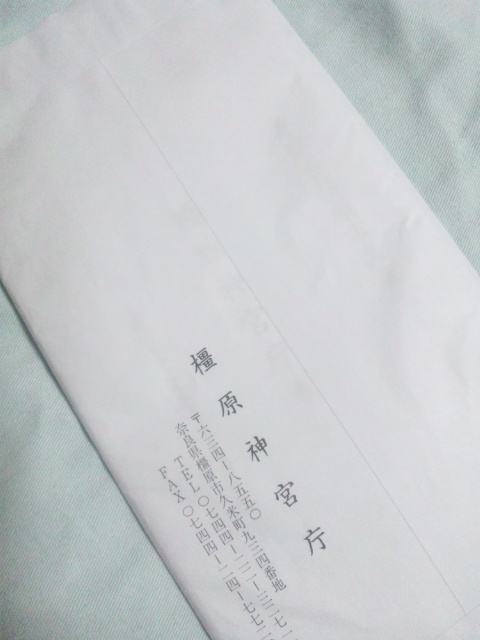 橿原神宮庁
〒六三四ー八五五〇
奈良県橿原市久米町九三四番地
TEL〇七四四ー二二ー三二七
FAX〇七四四ー二四ー七七二